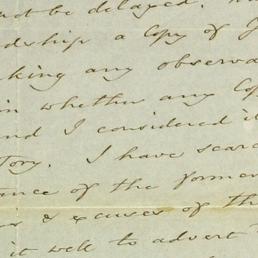 not be delayed.
dship a Copy of
king any observa
in whether any Cop
nd I considered it
tory. I have scarc
ance of the former
rs & excuses of th
it well to advert